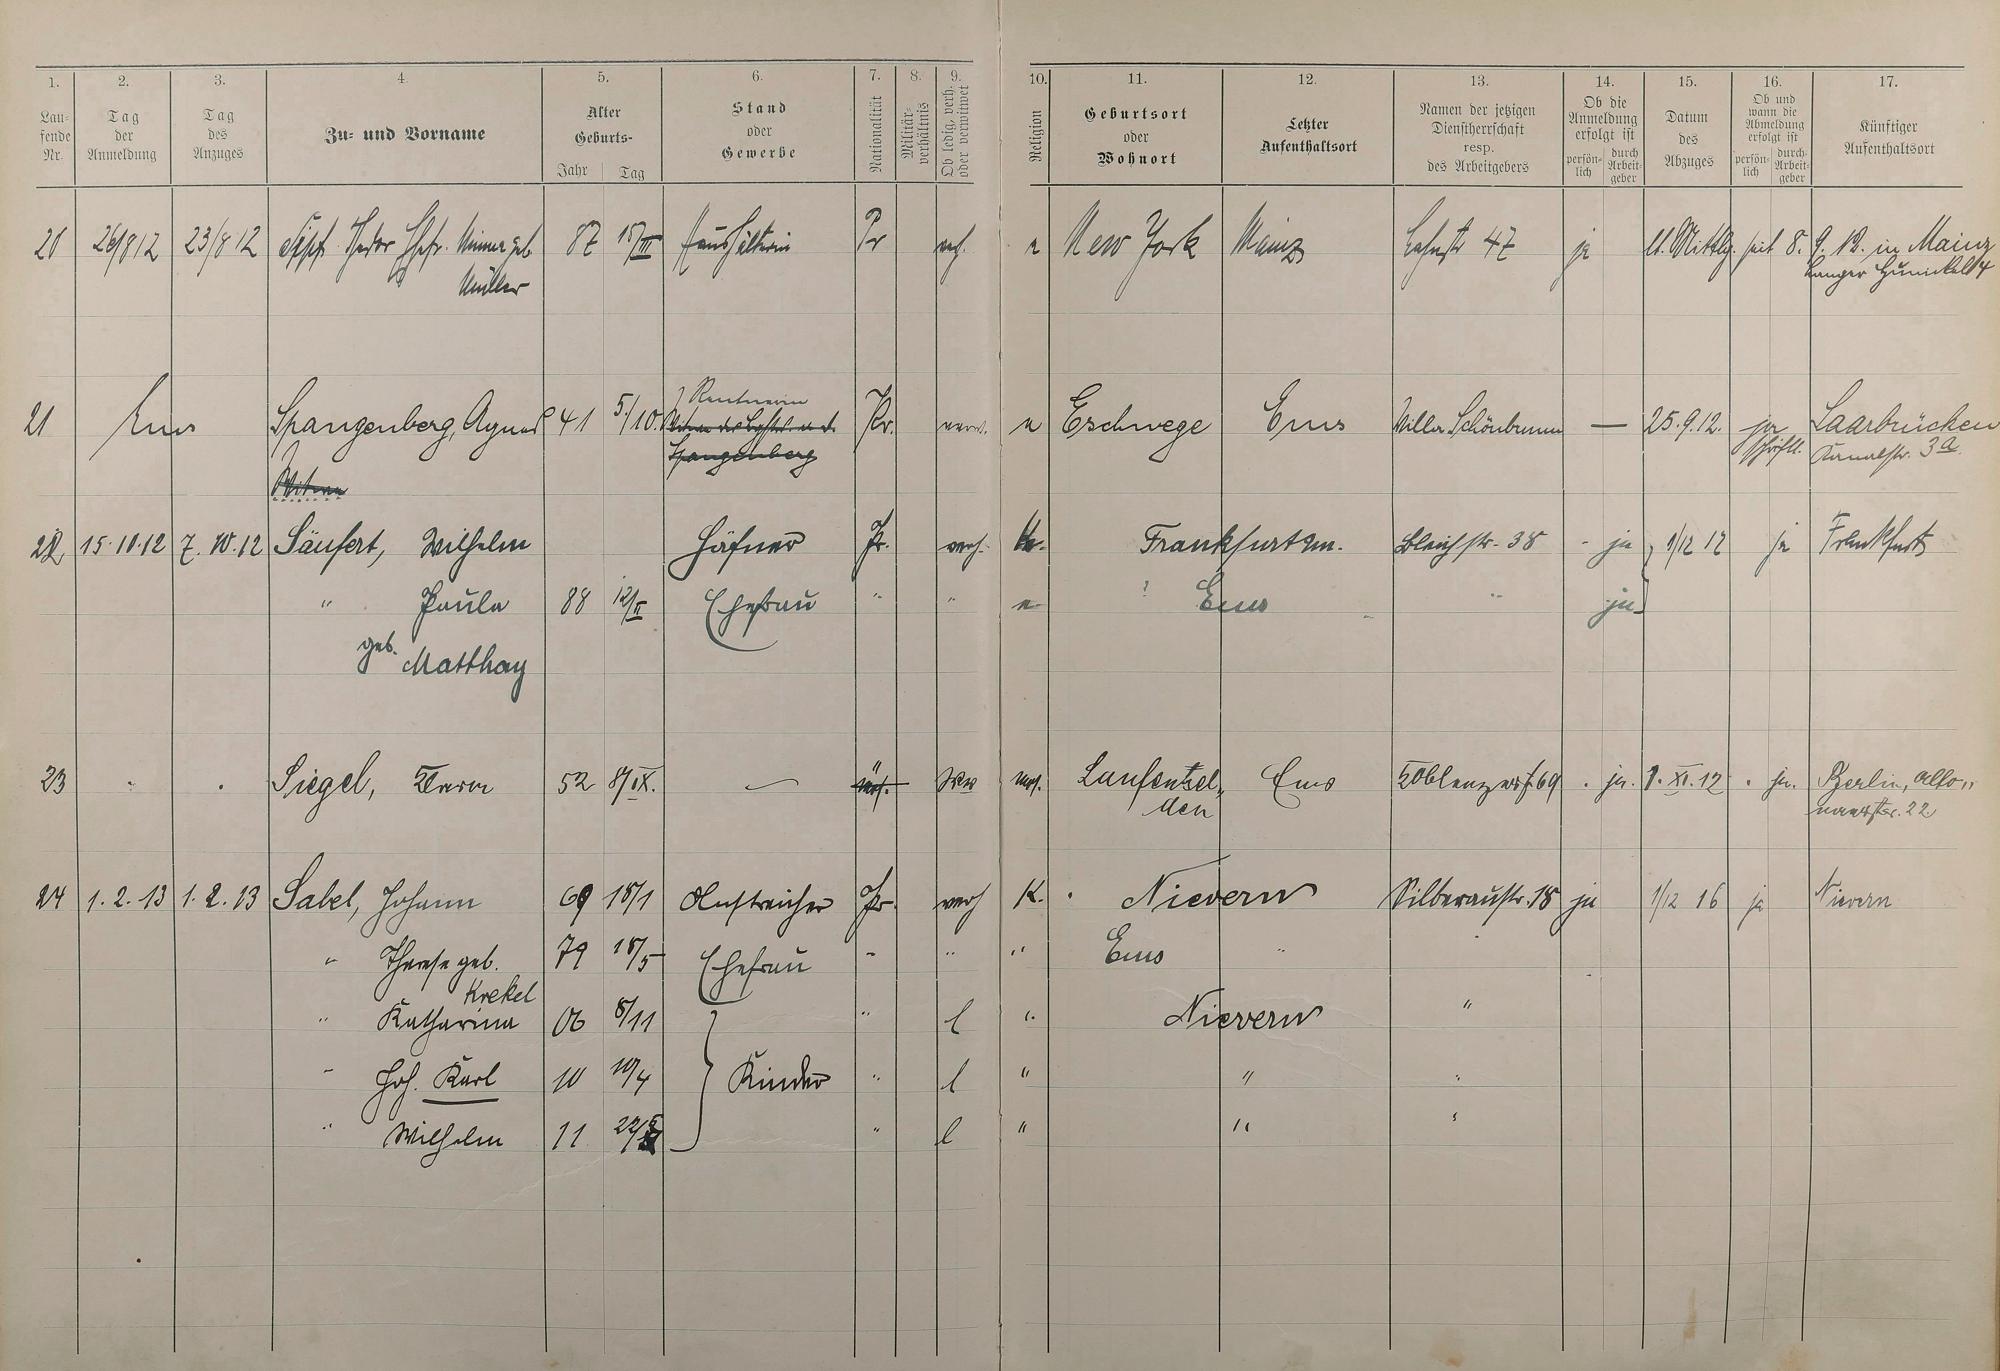 1. 2. 3. 4. 5. 6. 7. 8. 9. 10. 11. 12. 13. 14. 15. 16. 17.
Lau-
fende
Nr.
Tag
der
Anmeldung
Tag
des
Anzuges
Zu- und Vorname
Alter
Geburts-
Jahr Tag
Stand
oder
Gewerbe
Nationalität
Militär-
verhältnis
Ob ledig, verh.
oder verwitwet
Religion
Geburtsort
oder
Wohnort
Letzter
Aufenthaltsort
Namen der jetzigen
Dienstherrschaft
resp.
des Arbeitgebers
Ob die
Anmeldung
erfolgt ist
persön-
lich
durch
Arbeit-
geber
Datum
des
Abzuges
Ob und
wann die
Abmeldung
erfolgt ist
persön-
lich
durch
Arbeit-
geber
Künftiger
Aufenthaltsort
20 26/8 12 23/8 12 geb. 87 Haushälterin Pr verh. New York Mainz 47 ja seit 8. 9. 12. in Mainz
Müller
Rentnerin
21 Ems Spangenberg, Agnes 41 5./10. Pr. verw. Eschwege Ems Villa Schönbrunn — 25.9.12. ja Laarbrücken
Spangenberg schriftl. Kanalstr. 3a
Witwe
22 15.10.12 7.10.12 Säufert, Wilhelm Häfner Pr. verh. Frankfurt a.m. Bleichstr. 38 - ja 1/12 12 ja Frankfurt
" Paula 88 12/II Ehefrau " " Ems " ja
geb. Matthay
23 Siegel, 52 8/IX. — " Ww mos. Laufensel- Ems Coblenzerst 69 ja. 1. XI. 12 ja. Berlin, Alto-
den naerstr. 22
24 1.2.13 1.2.13 Sabel, Johann 69 18/1 Anstreicher Pr. verh K. Nievern Silberaustr. 18 ja 1/12 16 ja Nievern
" Therese geb. 79 18/5 Ehefrau " " " Ems "
Krekel
" Katharina 06 8/11 " l " Nievern "
" Joh. Karl 10 10/4 Kinder " l " " "
" Wilhelm 11 " l " " "